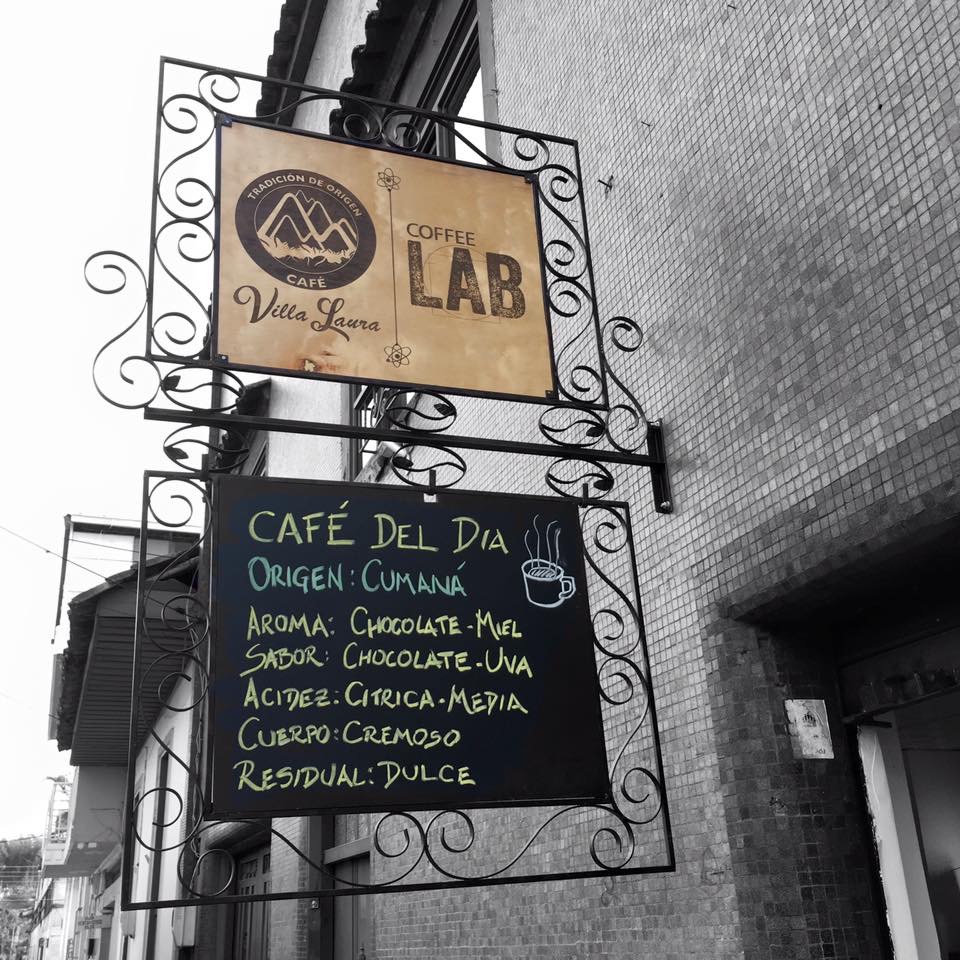 TRADICIÓN DE ORIGEN
CAFÉ
Villa Laura
COFFEE
LAB
CAFÉ DEL DIA
ORIGEN: CUMANÁ
AROMA: CHOCOLATE-MIEL
SABOR: CHOCOLATE-UVA
ACIDEZ: CITRICA-MEDIA
CUERPO: CREMOSO
RESIDUAL: DULCE